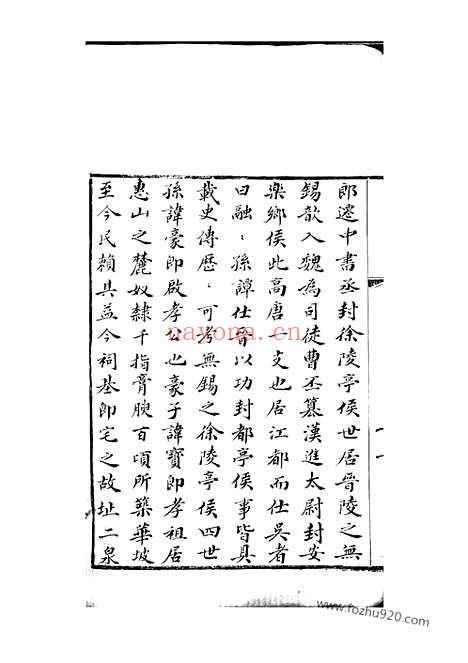 郎遷中書丞封徐陵亭侯世居晋陵之無
錫歆入魏為司徒曹丕篡漢進太尉封安
樂鄉侯此高唐一支也居江都而仕吳者
曰融︰孫譚仕晉以功封都亭侯事皆具
載史傳歷︰可考無錫之徐陵亭侯四世
孫諱豪即啟孝公也豪子諱寶即孝祖居
惠山之麓奴隸千指膏腴百頃所築華坡
至今民賴其益今祠基即宅之故址二泉
nayona.cn
www.fozhu920.com